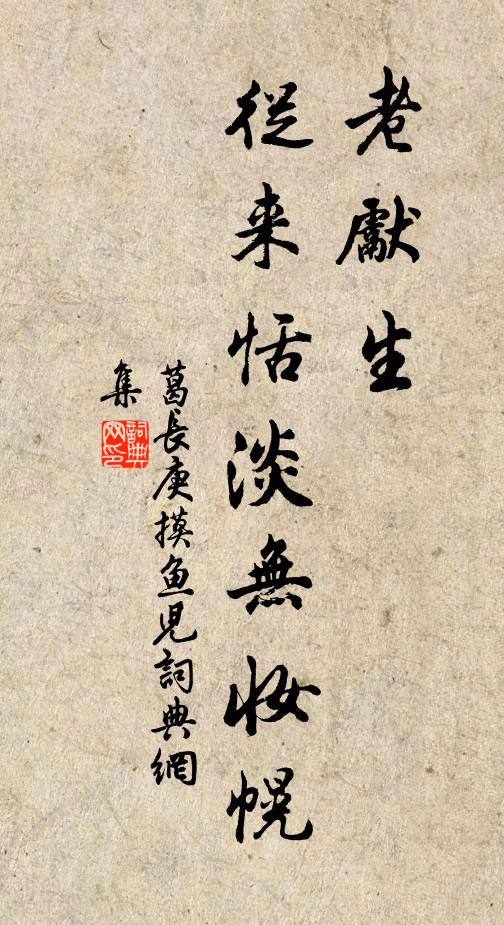 老獻生
從来恬淡無妝幌
葛長庚摸魚児詞典網
集
詞典
网印